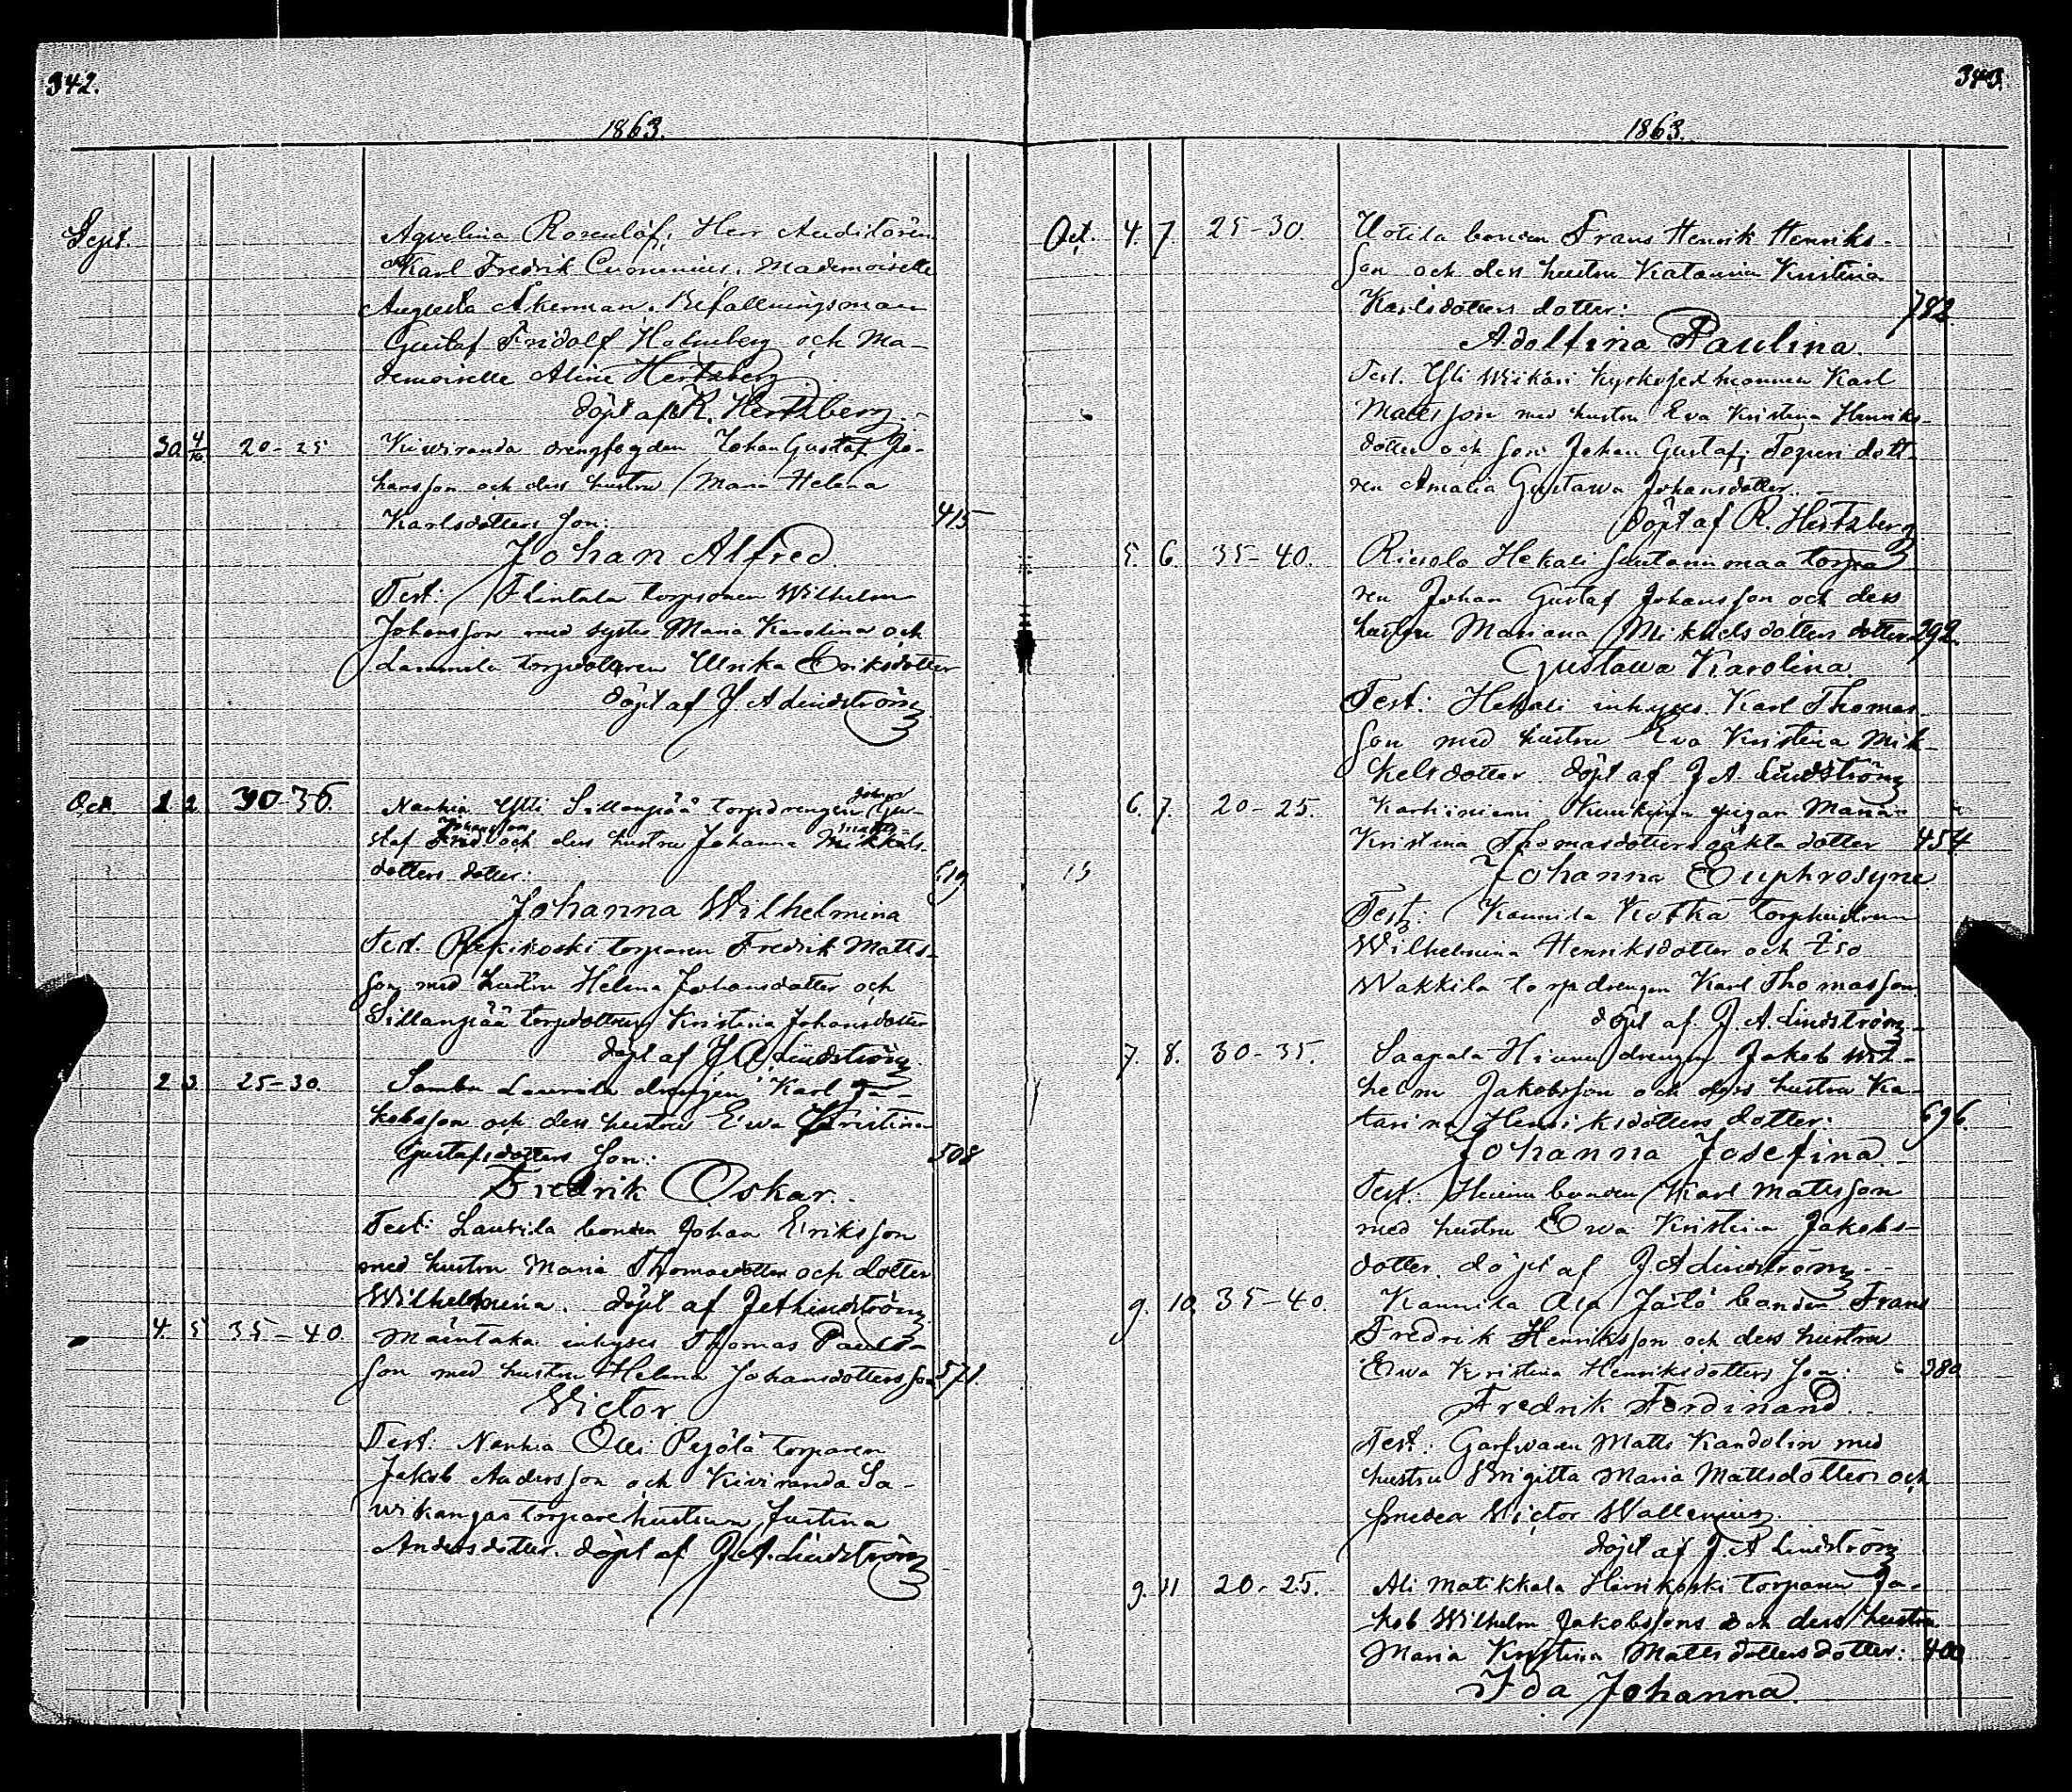 342.
1863.
Sept. Agvelina Rosenlöf; Herr Auditören
Karl Fredrik Cuonenius. Mademoiselle
Augusta Åkerman. Befallningsman
Gustaf Fridolf Holmberg och Ma-
demoiselle Aline Hertzberg
döpt af R. Hertzberg.
30 4/10 20-25 Kiviranda drengfogden Johan Gustaf Jo-
hansson och dess hustru Maria Helena
Karlsdotters son: 415
Johan Alfred.
Test: Flintala torpsonen Wilhelm
Johansson med syster Maria Karolina och
Lammila torpdottren Ulrika Eriksdotter
döpt af J A Lindström
Oct. 1 2 30-35. Nauhia Ylli Sillanpää torpdrengen Johan Gu-
staf Johansson och dess hustru Johanna Matts-
dotters dotter: 519
Johanna Wilhelmina
Test. Rekikoski torparen Fredrik Matts-
son med hustru Helena Johansdotter och
Sillanpää torpdottren Kristina Johansdotter
döpt af J. A. Lindström.
2 3 25-30. Sambu Laurila drengen Karl Ja-
kobsson och dess hustru Ewa Kristina
Gustafsdotters son: 508
Fredrik Oskar.
Test: Laurila bonden Johan Eriksson
med hustru Maria Thomasdotter och dotter
Wilhelmina. döpt af J A Lindström
4. 5 35-40. Mäntaka inhyses Thomas Pauls-
son med hustru Helena Johansdotters son 571.
Victor
Test. Nauhia Olli Pejölä torparen
Jakob Andersson och Kiviranda Sa-
vikangas torparehustrun Justina
Andersdotter. döpt af J. A. Lindström
343.
1863.
Oct. 4. 7. 25-30. Uotila bonden Frans Henrik Henriks-
son och dess hustru Katarina Kristina
Karlsdotters dotter: 782
Adolfina Paulina.
Test. Yli Wikari kyrkosexmannen Karl
Mattsson med hustru Eva Kristina Henriks-
dotter och son Johan Gustaf; dott-
ren Amalia Gustawa Johansdotter.
döpt af R. Hertzberg
5. 6. 35-40. Hekali torpa
ren Johan Gustaf Johansson och dess
hustru Mariana Mikkelsdotters dotter 292.
Gustawa Karolina
Test: Hekali inhyses Karl Thomas-
son med hustru Eva Kristina Mik-
kelsdotter döpt af J. A. Lindström
6. 7. 20-25. Karhiniemi pigan Maria
Kristina Thomasdotters oäkta dotter 454
13
Johanna Euphrosyne
Test: Kaunila Kotka torphustrun
Wilhelmina Henriksdotter och Iso
Wakkila torpdrengen Karl Thomasson
döpt af J. A. Lindström
7. 8. 30-35. Saapala Hiunu drengen Jakob Wil-
helm Jakobsson och dess hustru Ka-
tarina Henriksdotters dotter: 696.
Johanna Josefina.
Test: Hiunu bonden Karl Mattsson
med hustru Ewa Kristina Jakobs-
dotter. döpt af J A Lindström
9. 10. 35-40. Kaunila Ala Järlö bonden Frans
Fredrik Henriksson och dess hustru
Ewa Kristina Henriksdotters son: 380
Fredrik Ferdinand.
Test: Garfvaren Matts Kandolin med
hustru Brigitta Maria Mattsdotter och
smeden Wictor Wallenius.
döpt af J. A Lindström
9. 11 20-25. Ali Matikkala Harikoski torparen Ja-
kob Wilhelm Jakobssons och dess hustru
Maria Kristina Mattsdotters dotter: 400
Ida Johanna.